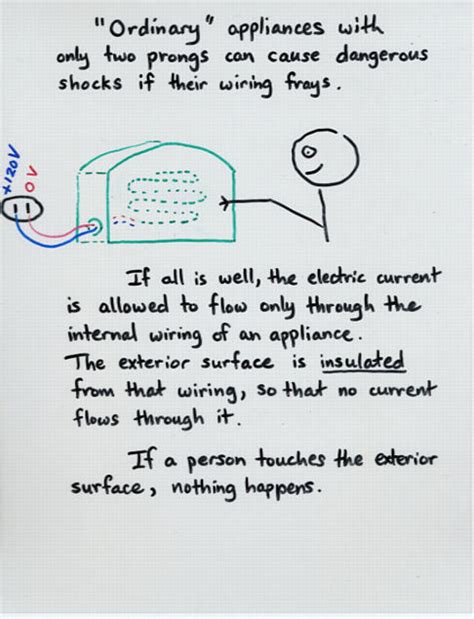 "Ordinary" appliances with
only two prongs can cause dangerous
shocks if their wiring frays.
+120V
0V
If all is well, the electric current
is allowed to flow only through the
internal wiring of an appliance.
The exterior surface is insulated
from that wiring, so that no current
flows through it.
If a person touches the exterior
surface, nothing happens.